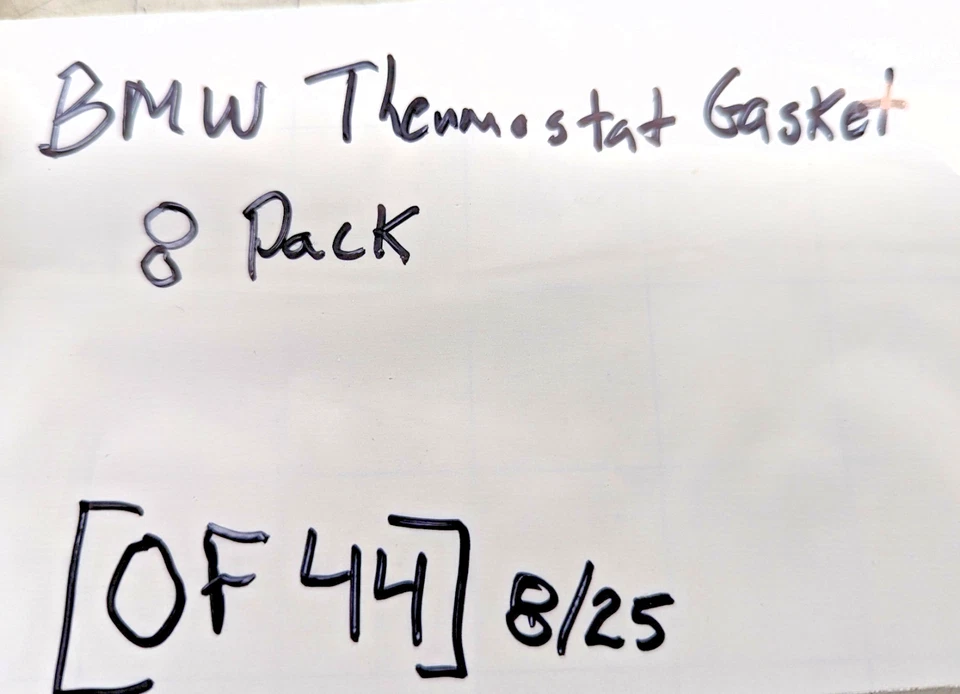 BMW Thermostat Gasket
8 Pack
[OF 44] 8/25